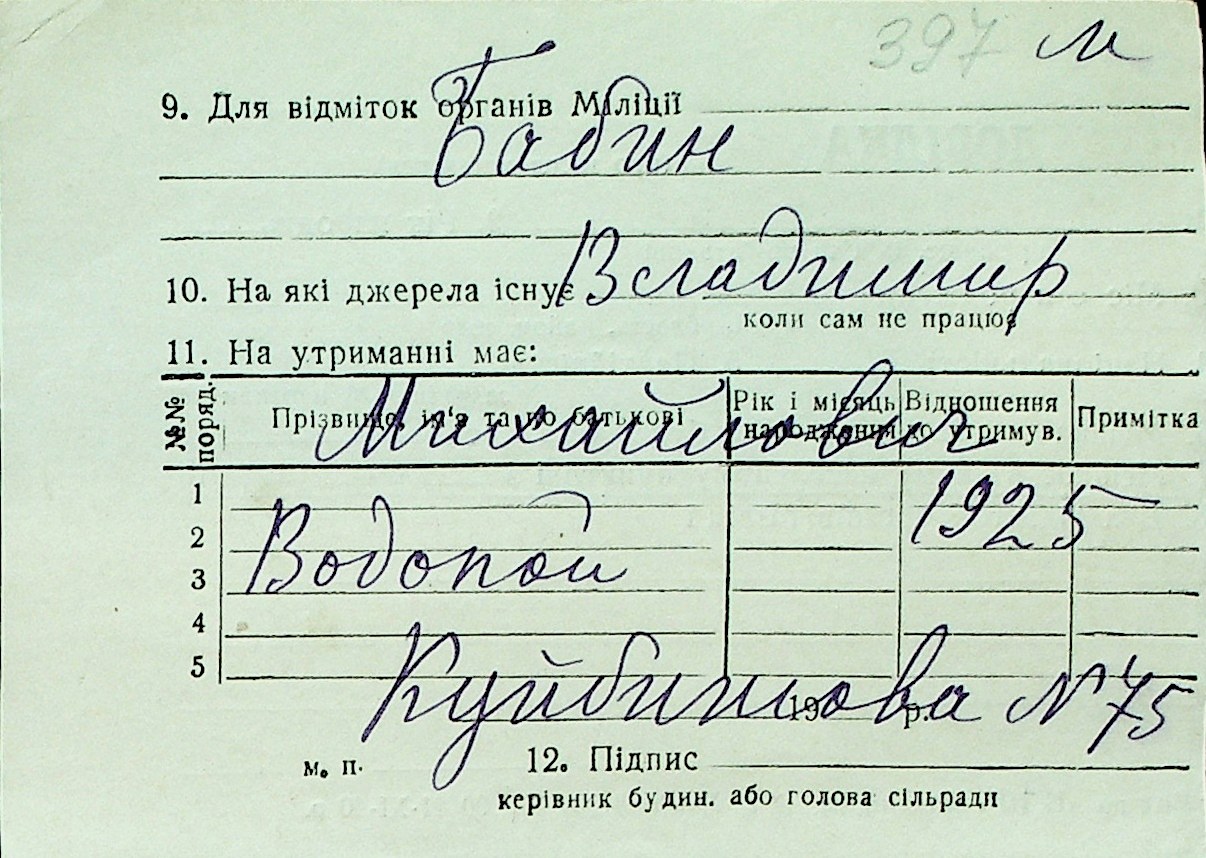 397 м
9. Для відміток органів Міліції
Бабин
10. На які джерела існує Владимир
коли сам не працює
11. На утриманні має:
№№ поряд. Прізвище, ім'я та по батькові Рік і місяць народження Відношення до утримув. Примітка
Михайлович
1
1925
2
Водопой
3
4
5
Куйбишова № 75
19 р.
м. п. 12. Підпис
керівник будин. або голова сільради